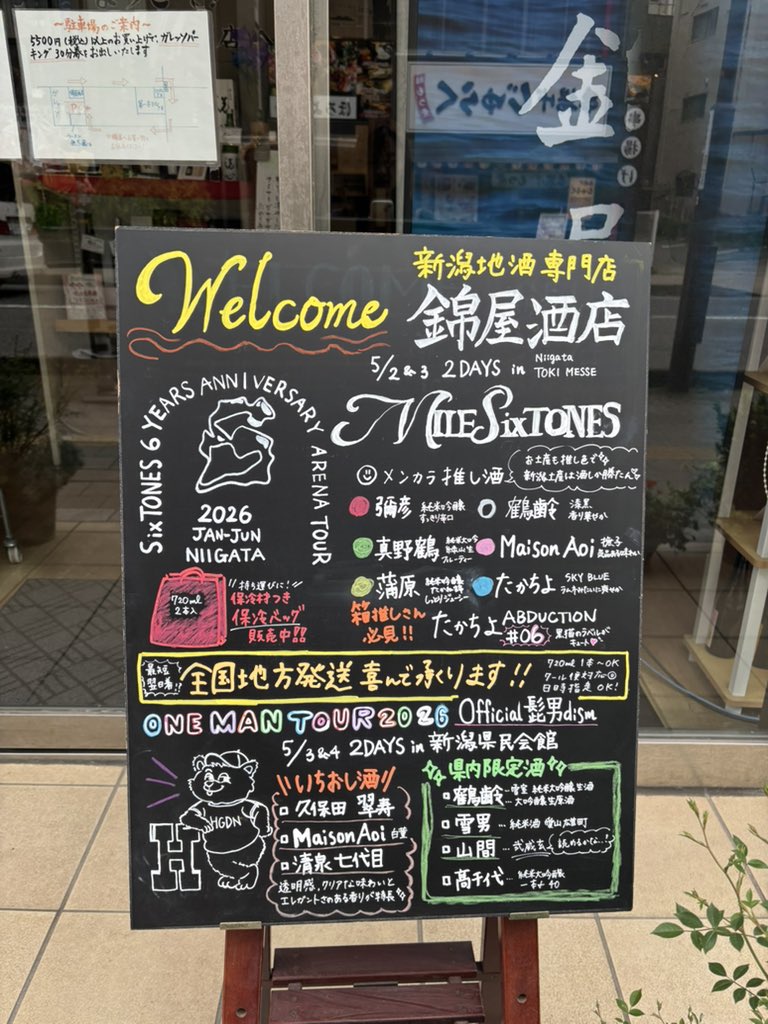 ～駐車場のご案内～
5500円(税込)以上のお買い上げで、ガレッソパー
キング30分券をお出しいたします
金
Welcome
新潟地酒専門店
錦屋酒店
5/2&3 2DAYS in Niigata TOKI MESSE
SixTONES 6 YEARS ANNIVERSARY ARENA TOUR
2026
JAN-JUN
NIIGATA
MILESixTONES
メンカラ推し酒
お土産も推し色で
新潟土産は酒しか勝たん
彌彦 純米吟醸 すっきり辛口
鶴齢
真野鶴 純米大吟醸 フルーティー
Maison Aoi 撫子
蒲原 純米吟醸
たかちよ SKY BLUE
箱推しさん
必見!!
たかちよ ABDUCTION
#06 黒猫のラベルがキュート
720ml
2本入
持ち運びに!
保冷材つき
保冷バッグ
販売中!!
最短
翌日着!
全国地方発送 喜んで承ります!!
720ml 1本～OK
クール便対応
日時指定OK!
ONE MAN TOUR 2026 Official髭男dism
5/3&4 2DAYS in 新潟県民会館
HGDN
H
いちおし酒
久保田 翠寿
Maison Aoi 白葉
清泉 七代目
透明感、クリアな味わいと
エレガントさのある香りが特長
県内限定酒
鶴齢…雪室 純米大吟醸生酒
…大吟醸生原酒
雪男…純米酒
山間…
読めるかな…!
髙千代…純米大吟醸
一本〆 40